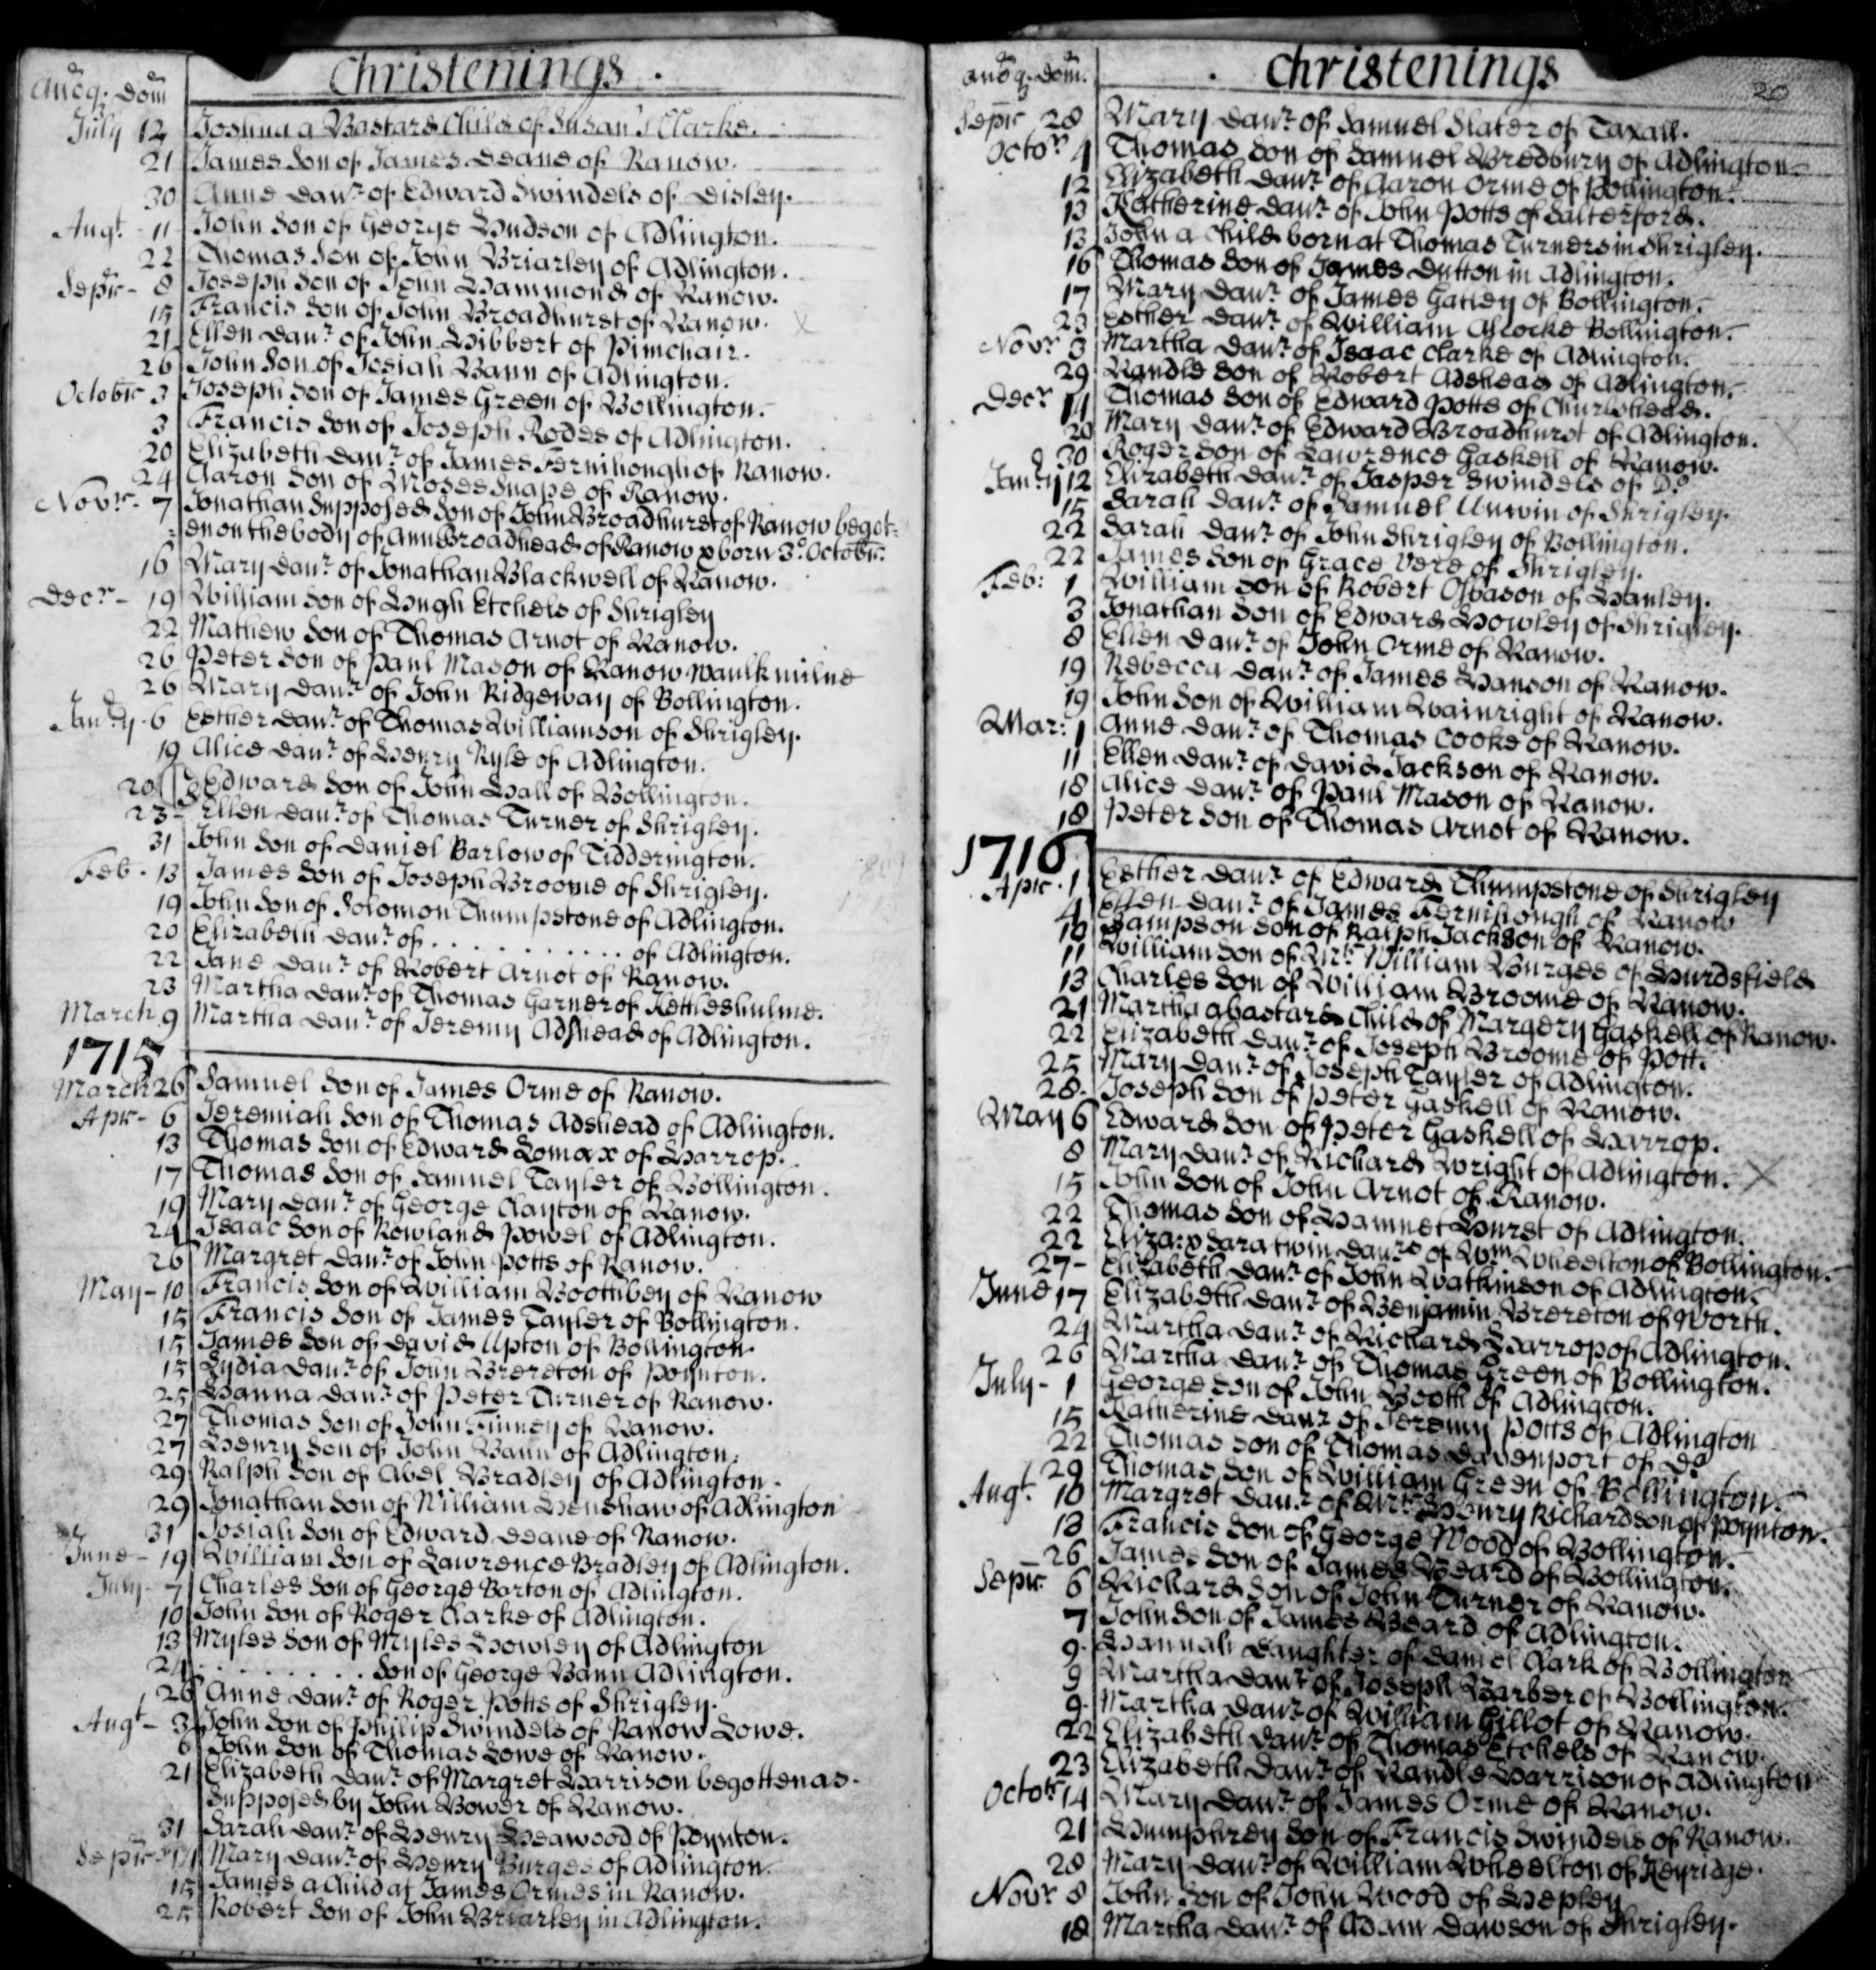 Christenings.
Anōq. Dom̄
July 12 Joshua a Bastard Child of Susan Clarke.
21 James Son of James Deane of Ranow.
30 Anne Daur. of Edward Swindels of Disley.
Augt. 11 John Son of George Hudson of Adlington.
22 Thomas Son of John Briarley of Adlington.
Sepr. 8 Joseph Son of John Hammond of Ranow.
15 Francis Son of John Broadhurst of Ranow. X
21 Ellen Daur. of John Hibbert of Pimchair.
26 John Son of Josiah Bann of Adlington.
Octobr 3 Joseph Son of James Green of Bollington.
3 Francis Son of Joseph Rodes of Adlington.
20 Elizabeth Daur. of James Fernihough of Ranow.
24 Aaron Son of Moses Snape of Ranow.
Novr. 7 Jonathan Supposed Son of John Broadhurst of Ranow begot:
:en on the body of Ann Broadhead of Ranow & born 3d. Octobr.
16 Mary Daur. of Jonathan Blackwell of Ranow.
Decr. 19 William Son of Hugh Etchels of Shrigley
22 Mathew Son of Thomas Arnot of Ranow.
26 Peter Son of Paul Mason of Ranow Waulk milne
26 Mary Daur. of John Ridgeway of Bollington.
Janry. 6 Esther Daur. of Thomas Williamson of Shrigley.
19 Alice Daur. of Henry Ryle of Adlington.
20 Edward Son of John Hall of Bollington.
23 Ellen Daur. of Thomas Turner of Shrigley.
31 John Son of Daniel Barlow of Tidderington.
Feb. 13 James Son of Joseph Broome of Shrigley.
19 John Son of Solomon Thumpstone of Adlington.
20 Elizabeth Daur. of . . . . . . . . . . of Adlington.
22 Jane Daur. of Robert Arnot of Ranow.
23 Martha Daur. of Thomas Garner of Kettleshulme.
March 9 Martha Daur. of Jeremy Adshead of Adlington.
1715
March 26 Samuel Son of James Orme of Ranow.
Apr. 6 Jeremiah Son of Thomas Adshead of Adlington.
13 Thomas Son of Edward Lomax of Harrop.
17 Thomas Son of Samuel Tayler of Bollington.
19 Mary Daur. of George Clayton of Ranow.
24 Isaac Son of Rowland Powel of Adlington.
26 Margret Daur. of John Potts of Ranow.
May 10 Francis Son of William Boothbey of Ranow
15 Francis Son of James Tayler of Bollington.
15 James Son of David Upton of Bollington.
15 Lydia Daur. of John Brereton of Poynton.
25 Hanna Daur. of Peter Turner of Ranow.
27 Thomas Son of John Finney of Ranow.
27 Henry Son of John Bann of Adlington.
29 Ralph Son of Abel Bradley of Adlington.
29 Jonathan Son of William Henshaw of Adlington
31 Josiah Son of Edward Deane of Ranow.
June 19 William Son of Lawrence Bradley of Adlington.
July 7 Charles Son of George Barton of Adlington.
10 John Son of Roger Clarke of Adlington.
13 Myles Son of Myles Howley of Adlington
24 . . . . . . . . . Son of George Bann Adlington.
26 Anne Daur. of Roger Potts of Shrigley.
Augt. 3 John Son of Philip Swindels of Ranow Lowe.
6 John Son of Thomas Lowe of Ranow.
21 Elizabeth Daur. of Margret Harrison begotten as
Supposed by John Bower of Ranow.
31 Sarah Daur. of Henry Heawood of Poynton.
Sepr. 11 Mary Daur. of Henry Burges of Adlington.
15 James a Child at James Ormes in Ranow.
25 Robert Son of John Briarley in Adlington.
Christenings
20
Anōq. Dom̄.
Sepr 28 Mary Daur. of Samuel Slater of Taxall.
Octor. 4 Thomas Son of Samuel Bredbury of Adlington.
12 Elizabeth Daur. of Aaron Orme of Pollington.
13 Katherine Daur. of John Potts of Salterford.
13 John a Child born at Thomas Turners in Shrigley.
16 Thomas Son of James Dutton in Adlington.
17 Mary Daur. of James Gatley of Bollington.
23 Esther Daur. of William Alcocke Bollington.
Novr. 3 Martha Daur. of Isaac Clarke of Adlington.
29 Randle Son of Robert Adshead of Adlington.
Decr. 14 Thomas Son of Edward Potts of Churlshead.
20 Mary Daur. of Edward Broadhurst of Adlington.
30 Roger Son of Lawrence Gaskell of Ranow.
Janry 12 Elizabeth Daur. of Jasper Swindels of Do.
15 Sarah Daur. of Samuel Unwin of Shrigley.
22 Sarah Daur. of John Shrigley of Bollington.
22 James Son of Grace Vere of Shrigley.
Feb: 1 William Son of Robert Osbason of Hanley.
3 Jonathan Son of Edward Howley of Shrigley.
8 Ellen Daur. of John Orme of Ranow.
19 Rebecca Daur. of James Hanson of Ranow.
19 John Son of William Wainright of Ranow.
Mar: 1 Anne Daur. of Thomas Cooke of Ranow.
11 Ellen Daur. of David Jackson of Ranow.
18 Alice Daur. of Paul Mason of Ranow.
18 Peter Son of Thomas Arnot of Ranow.
1716
Apr. 1 Esther Daur. of Edward Thumpstone of Shrigley
4 Ellen Daur. of James Fernihough of Ranow
10 Sampson Son of Ralph Jackson of Ranow.
11 William Son of Mr. William Burges of Hurdsfield
13 Charles Son of William Broome of Ranow.
21 Martha a bastard Child of Margery Gaskell of Ranow.
22 Elizabeth Daur. of Joseph Broome of Pott.
25 Mary Daur. of Joseph Tayler of Adlington.
28. Joseph Son of Peter Gaskell of Ranow.
May 6 Edward Son of Peter Gaskell of Harrop.
8 Mary Daur. of Richard Wright of Adlington. X
15 John Son of John Arnot of Ranow.
22 Thomas Son of Hamnet Hurst of Adlington.
22 Eliza: & Sara twin Daurs. of Wm. Wheelton of Bollington.
27 Elizabeth Daur. of John Watkinson of Adlington.
June 17 Elizabeth Daur. of Benjamin Brereton of Worth.
24 Martha Daur. of Richard Harrop of Adlington.
26 Martha Daur. of Thomas Green of Bollington.
July 1 George Son of John Booth of Adlington.
15 Katherine Daur. of Jeremy Potts of Adlington
22 Thomas Son of Thomas Davenport of Do
29 Thomas Son of William Green of Bollington.
Augt. 10 Margret Daur. of Mr. Henry Richardson of Poynton.
13 Francis Son of George Wood of Bollington.
26 James Son of James Beard of Bollington.
Sepr. 6 Richard Son of John Turner of Ranow.
7 John Son of James Beard of Adlington.
9. Hannah Daughter of Daniel Clark of Bollington
9 Martha Daur. of Joseph Barber of Bollington.
9. Martha Daur. of William Gillot of Ranow.
22 Elizabeth Daur. of Thomas Etchels of Ranow.
23 Elizabeth Daur. of Randle Harrison of Adlington
Octobr. 14 Mary Daur. of James Orme of Ranow.
21 Humphrey Son of Francis Swindels of Ranow.
28 Mary Daur. of William Wheelton of Keyridge.
Novr 8 John Son of John Wood of Hepley
18 Martha Daur. of Adam Dawson of Shrigley.